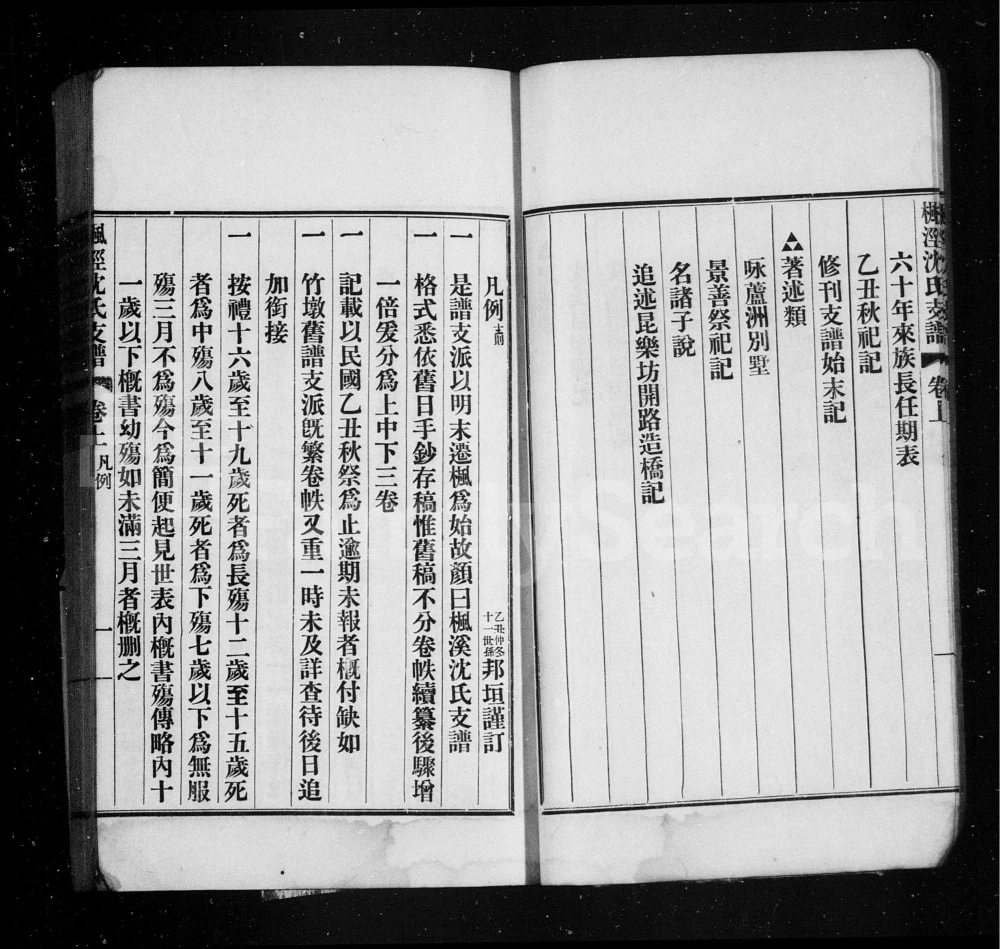 楓涇沈氏支譜 卷上
六十年來族長任期表
乙丑秋祀記
修刊支譜始末記
著述類
咏蘆洲別墅
景善祭祀記
名諸子說
追述昆樂坊開路造橋記
凡例 十一則 乙丑仲冬十一世孫邦垣謹訂
一 是譜支派以明末遷楓爲始故顏曰楓溪沈氏支譜
一 格式悉依舊日手鈔存稿惟舊稿不分卷帙續纂後驟增
一倍爰分爲上中下三卷
一 記載以民國乙丑秋祭爲止逾期未報者槪付缺如
一 竹墩舊譜支派旣繁卷帙又重一時未及詳查待後日追
加銜接
一 按禮十六歲至十九歲死者爲長殤十二歲至十五歲死
者爲中殤八歲至十一歲死者爲下殤七歲以下爲無服
殤三月不爲殤今爲簡便起見世表內槪書殤傳略內十
一歲以下槪書幼殤如未滿三月者槪刪之
楓涇沈氏支譜 卷上 凡例 一
FamilySearch